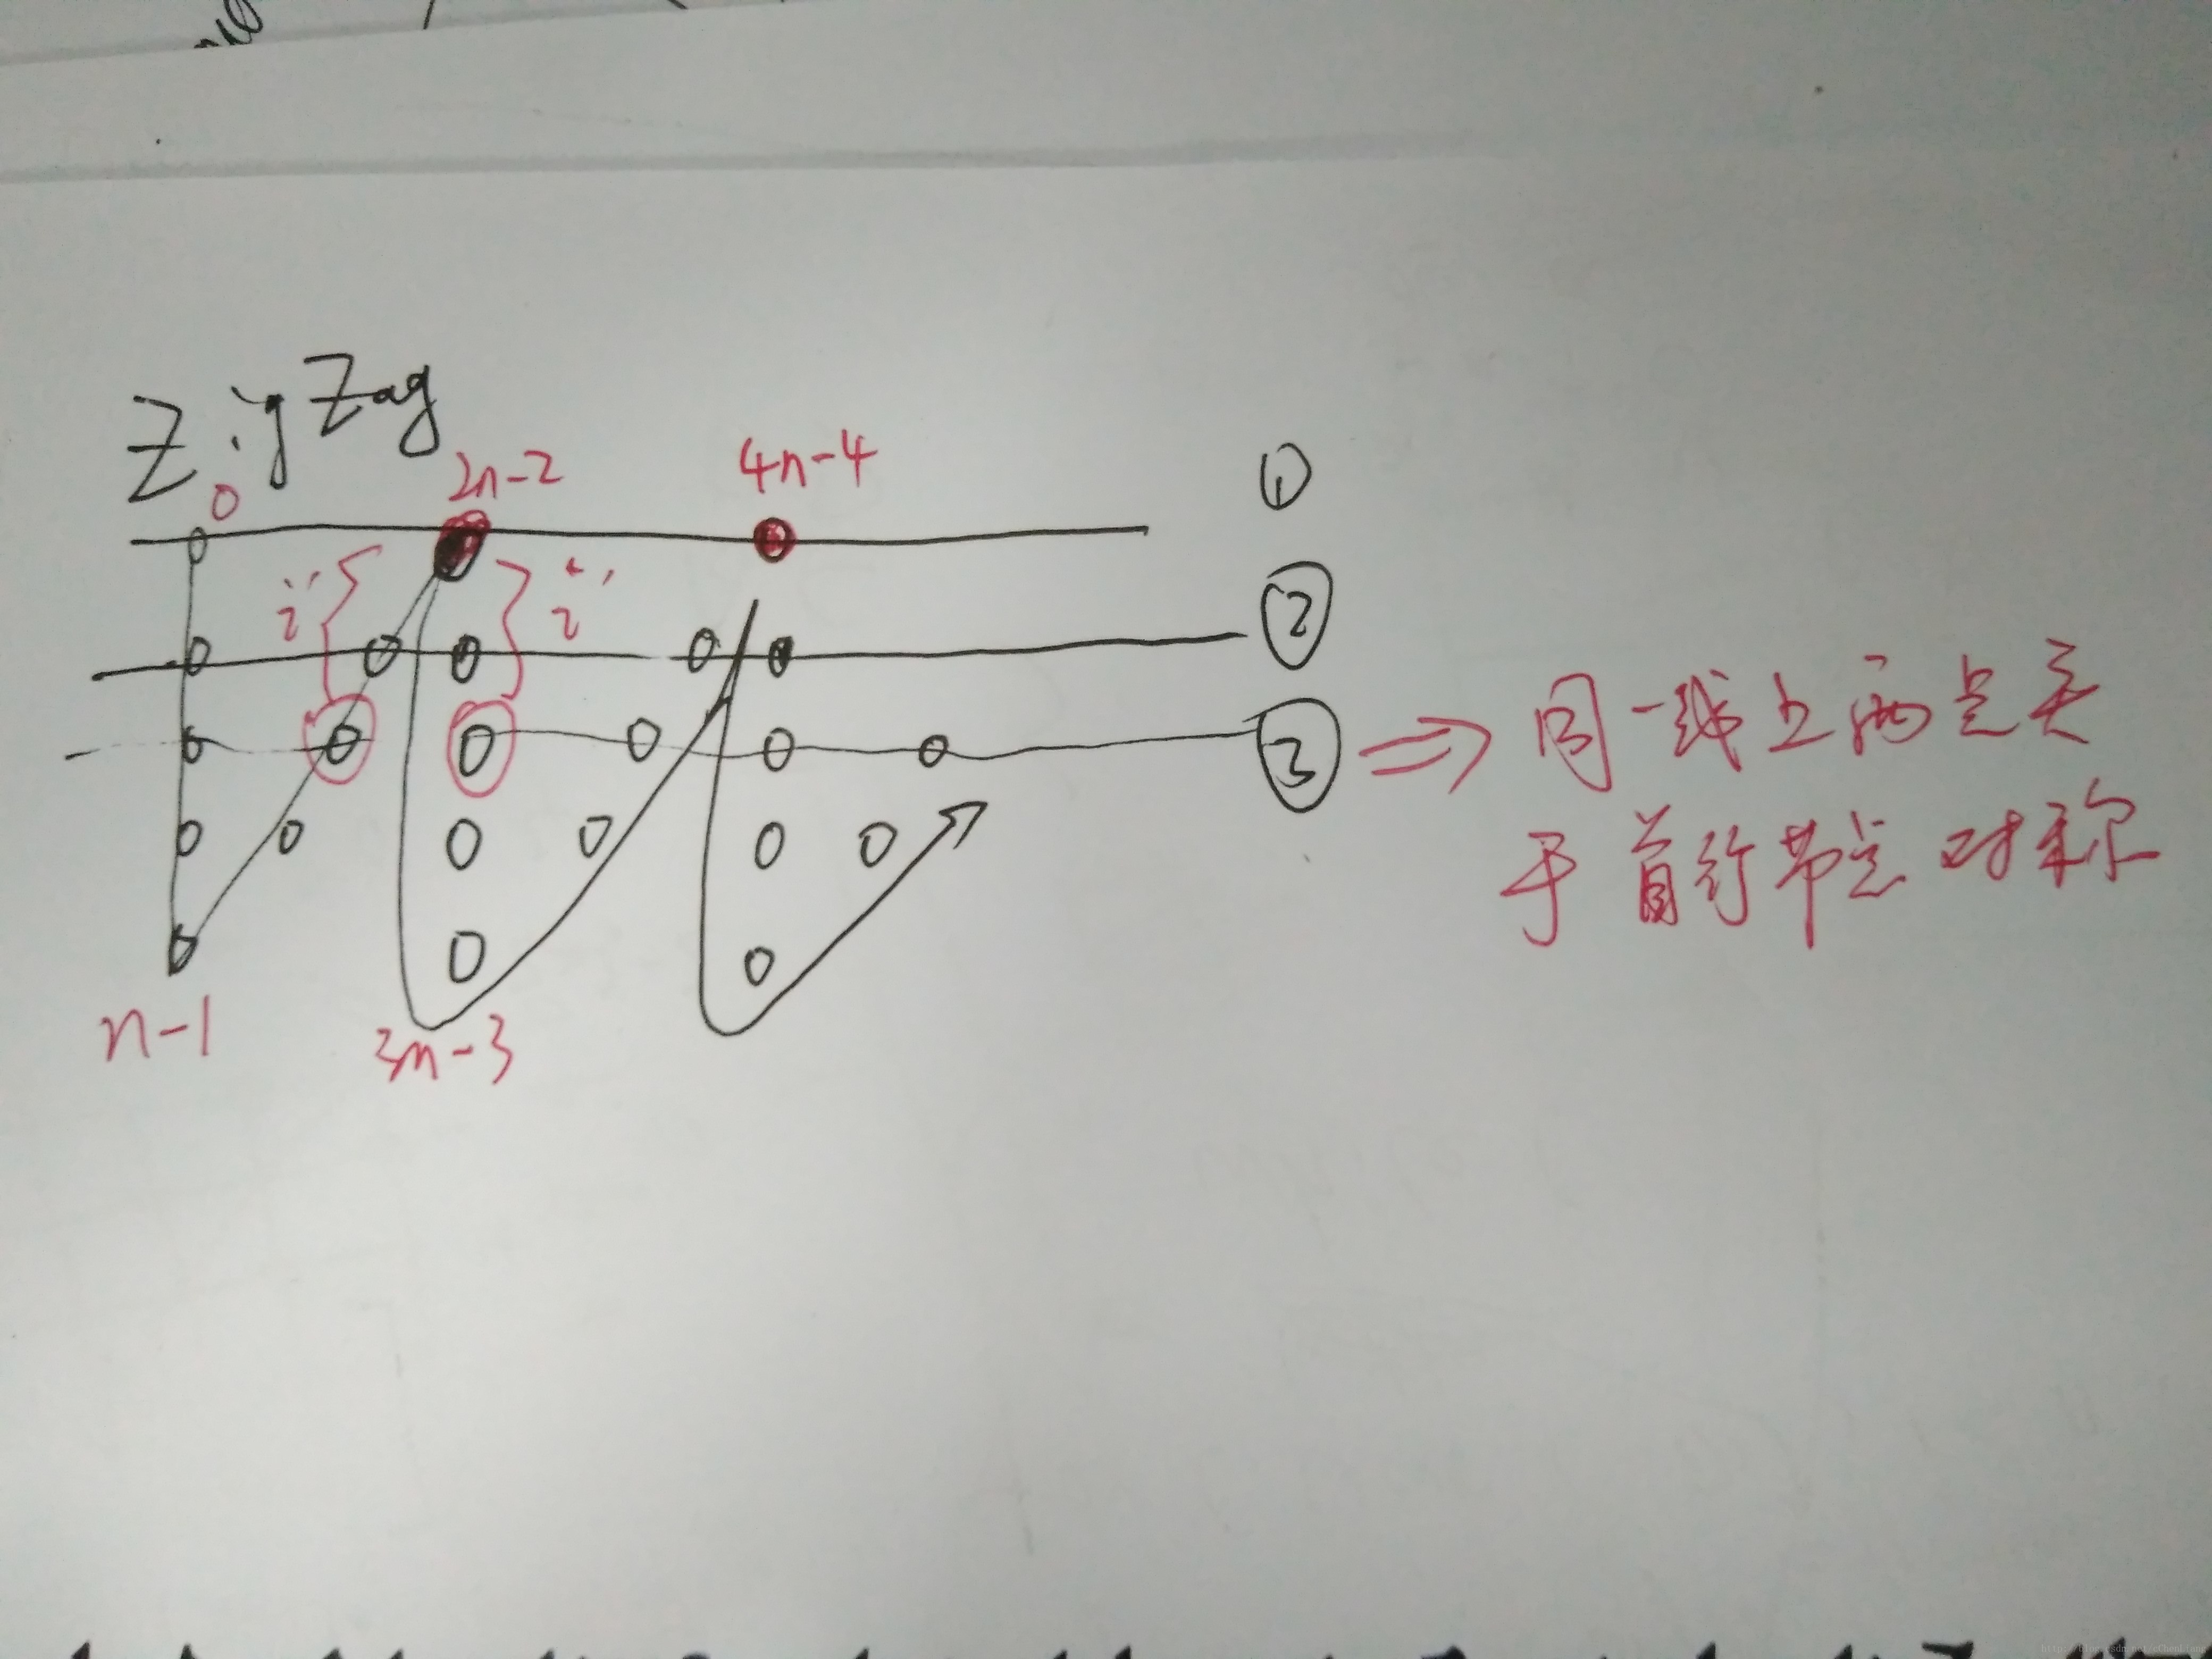 ZigZag
0
2n-2
4n-4
①
"i"
"i"
②
③ ⇒ 同一线上两点关
于首行节点对称
n-1
3n-3